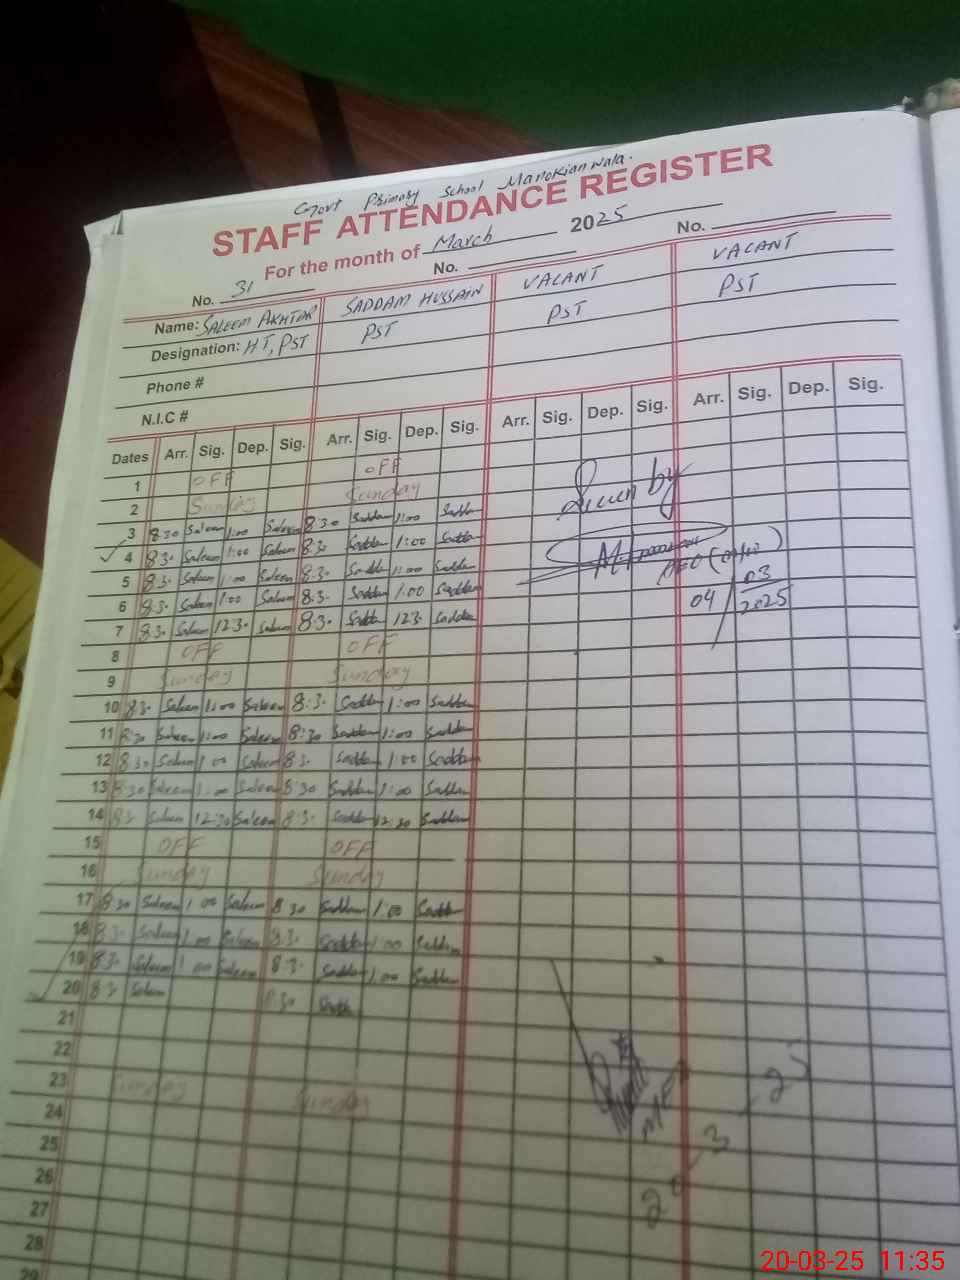 Govt Primary School Manokianwala.
STAFF ATTENDANCE REGISTER
For the month of March 2025
No. 31 No. No.
Name: SALEEM AKHTAR SADDAM HUSSAIN VACANT VACANT
Designation: HT, PST PST PST PST
Phone #
N.I.C #
Dates Arr. Sig. Dep. Sig. Arr. Sig. Dep. Sig. Arr. Sig. Dep. Sig. Arr. Sig. Dep. Sig.
1 OFF OFF
2 Sunday Sunday
3 8:30 Saleem 1:00 Saleem 8:30 Saddam 1:00 Saddam
4 8:3. Saleem 1:00 Saleem 8:3. Saddam 1:00 Saddam
5 8:3. Saleem 1:00 Saleem 8:3. Saddam 1:00 Saddam
6 8:3. Saleem 1:00 Saleem 8:3. Saddam 1:00 Saddam
7 8:3. Saleem 123. Saleem 8:3. Saddam 123. Saddam
8 OFF OFF
9 Sunday Sunday
10 8:3. Saleem 1:00 Saleem 8:3. Saddam 1:00 Saddam
11 8:30 Saleem 1:00 Saleem 8:30 Saddam 1:00 Saddam
12 8:30 Saleem 1:00 Saleem 8:3. Saddam 1:00 Saddam
13 8:30 Saleem 1:00 Saleem 8:30 Saddam 1:00 Saddam
14 8:3. Saleem 12:30 Saleem 8:3. Saddam 12:30 Saddam
15 OFF OFF
16 Sunday Sunday
17 8:30 Saleem 1:00 Saleem 8:30 Saddam 1:00 Saddam
18 8:3. Saleem 1:00 Saleem 8:3. Saddam 1:00 Saddam
19 8:3. Saleem 1:00 Saleem 8:3. Saddam 1:00 Saddam
20 8:3. Saleem 8:30
21
22
23 Sunday Sunday
24
25
26
27
28
29
Seen by
AEO
04/03/2025
20-3-25
20-03-25 11:35